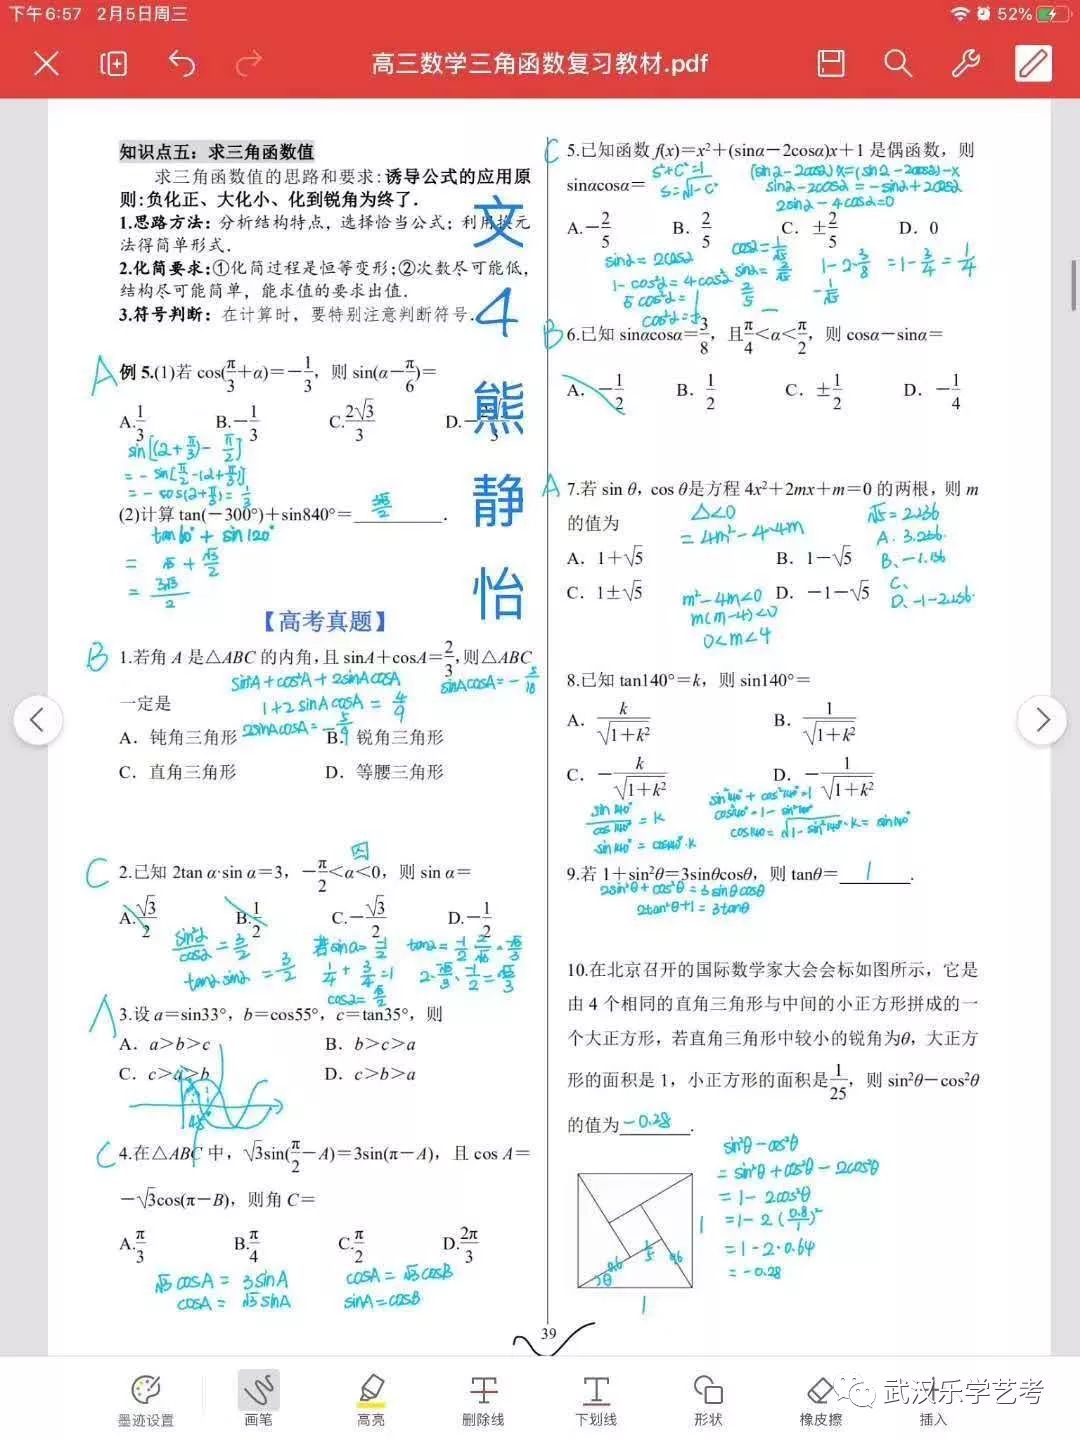 下午6:57 2月5日周三
52%
高三数学三角函数复习教材.pdf
知识点五：求三角函数值
求三角函数值的思路和要求：诱导公式的应用原
则：负化正、大化小、化到锐角为终了．
1.思路方法：分析结构特点，选择恰当公式；利用换元
法得简单形式．
2.化简要求：①化简过程是恒等变形；②次数尽可能低，
结构尽可能简单，能求值的要求出值．
3.符号判断：在计算时，要特别注意判断符号．
文
4
熊
静
怡
A
例 5.(1)若 cos(π/3+α)=-1/3，则 sin(α-π/6)=
A.1/3 B.-1/3 C.2√3/3 D.-
sin[(α+π/3)-π/2]
=-sin[π/2-(α+π/3)]
=-cos(α+π/3)=1/3
(2)计算 tan(-300°)+sin840°=________．
3√3/2
tan60°+sin120°
=√3+√3/2
=3√3/2
【高考真题】
B
1.若角 A 是△ABC 的内角，且 sinA+cosA=2/3，则△ABC
sin²A+cos²A+2sinAcosA
sinAcosA=-5/18
一定是
1+2sinAcosA=4/9
2sinAcosA=-5/9
A．钝角三角形 B．锐角三角形
C．直角三角形 D．等腰三角形
四
C
2.已知 2tan α·sin α=3，-π/2<α<0，则 sin α=
A.√3/2 B.1/2 C.-√3/2 D.-1/2
sin²α/cosα=3/2
tanα sinα=3/2
若sinα=-1/2
1/4+3/4=1
cosα=√3/2
A
3.设 a=sin33°，b=cos55°，c=tan35°，则
A．a>b>c B．b>c>a
C．c>a>b D．c>b>a
45°
C
4.在△ABC 中，√3sin(π/2-A)=3sin(π-A)，且 cos A=
-√3cos(π-B)，则角 C=
A.π/3 B.π/4 C.π/2 D.2π/3
√3cosA=3sinA cosA=√3cosB
cosA=√3sinA sinA=cosB
C
5.已知函数 f(x)=x²+(sinα-2cosα)x+1 是偶函数，则
s²+c²=1
s=√1-c²
(sinα-2cosα)x=(sinα-2cosα)-x
sinαcosα=
sinα-2cosα=-sinα+2cosα
2sinα-4cosα=0
A.-2/5 B．2/5 C．±2/5 D．0
sinα=2cosα
1-cos²α=4cos²α
5cos²α=1
cosα=1/√5
sinα=2/√5
2/5
1-2·3/8=1-3/4=1/4
B
6.已知 sinαcosα=3/8，且π/4<α<π/2，则 cosα-sinα=
A．-1/2 B．1/2 C．±1/2 D．-1/4
A
7.若 sin θ，cos θ是方程 4x²+2mx+m=0 的两根，则 m
的值为
△<0
=4m²-4·4m
√5=2.236
A. 3.236
A．1+√5 B．1-√5
B、-1.136
C．1±√5 D．-1-√5
C、
D、-1-2.236
m²-4m<0
m(m-4)<0
0<m<4
8.已知 tan140°=k，则 sin140°=
A．k/√1+k² B．1/√1+k²
C．-k/√1+k² D．-1/√1+k²
sin140°/cos140°=k
sin140°=cos140°·k
sin²140°+cos²140°=1
cos²140°=1-sin²140°
cos140=√1-sin²140°·k=sin140°
9.若 1+sin²θ=3sinθcosθ，则 tanθ=________．
1
2sin²θ+cos²θ=3sinθcosθ
2tan²θ+1=3tanθ
10.在北京召开的国际数学家大会会标如图所示，它是
由 4 个相同的直角三角形与中间的小正方形拼成的一
个大正方形，若直角三角形中较小的锐角为θ，大正方
形的面积是 1，小正方形的面积是1/25，则 sin²θ-cos²θ
的值为________．
-0.28
sin²θ-cos²θ
=sin²θ+cos²θ-2cos²θ
=1-2cos²θ
=1-2(0.8/1)²
=1-2·0.64
=-0.28
1
0.6
1/5
0.6
θ
1
39
墨迹设置 画笔 高亮 删除线 下划线 形状 橡皮擦 插入
武汉乐学艺考